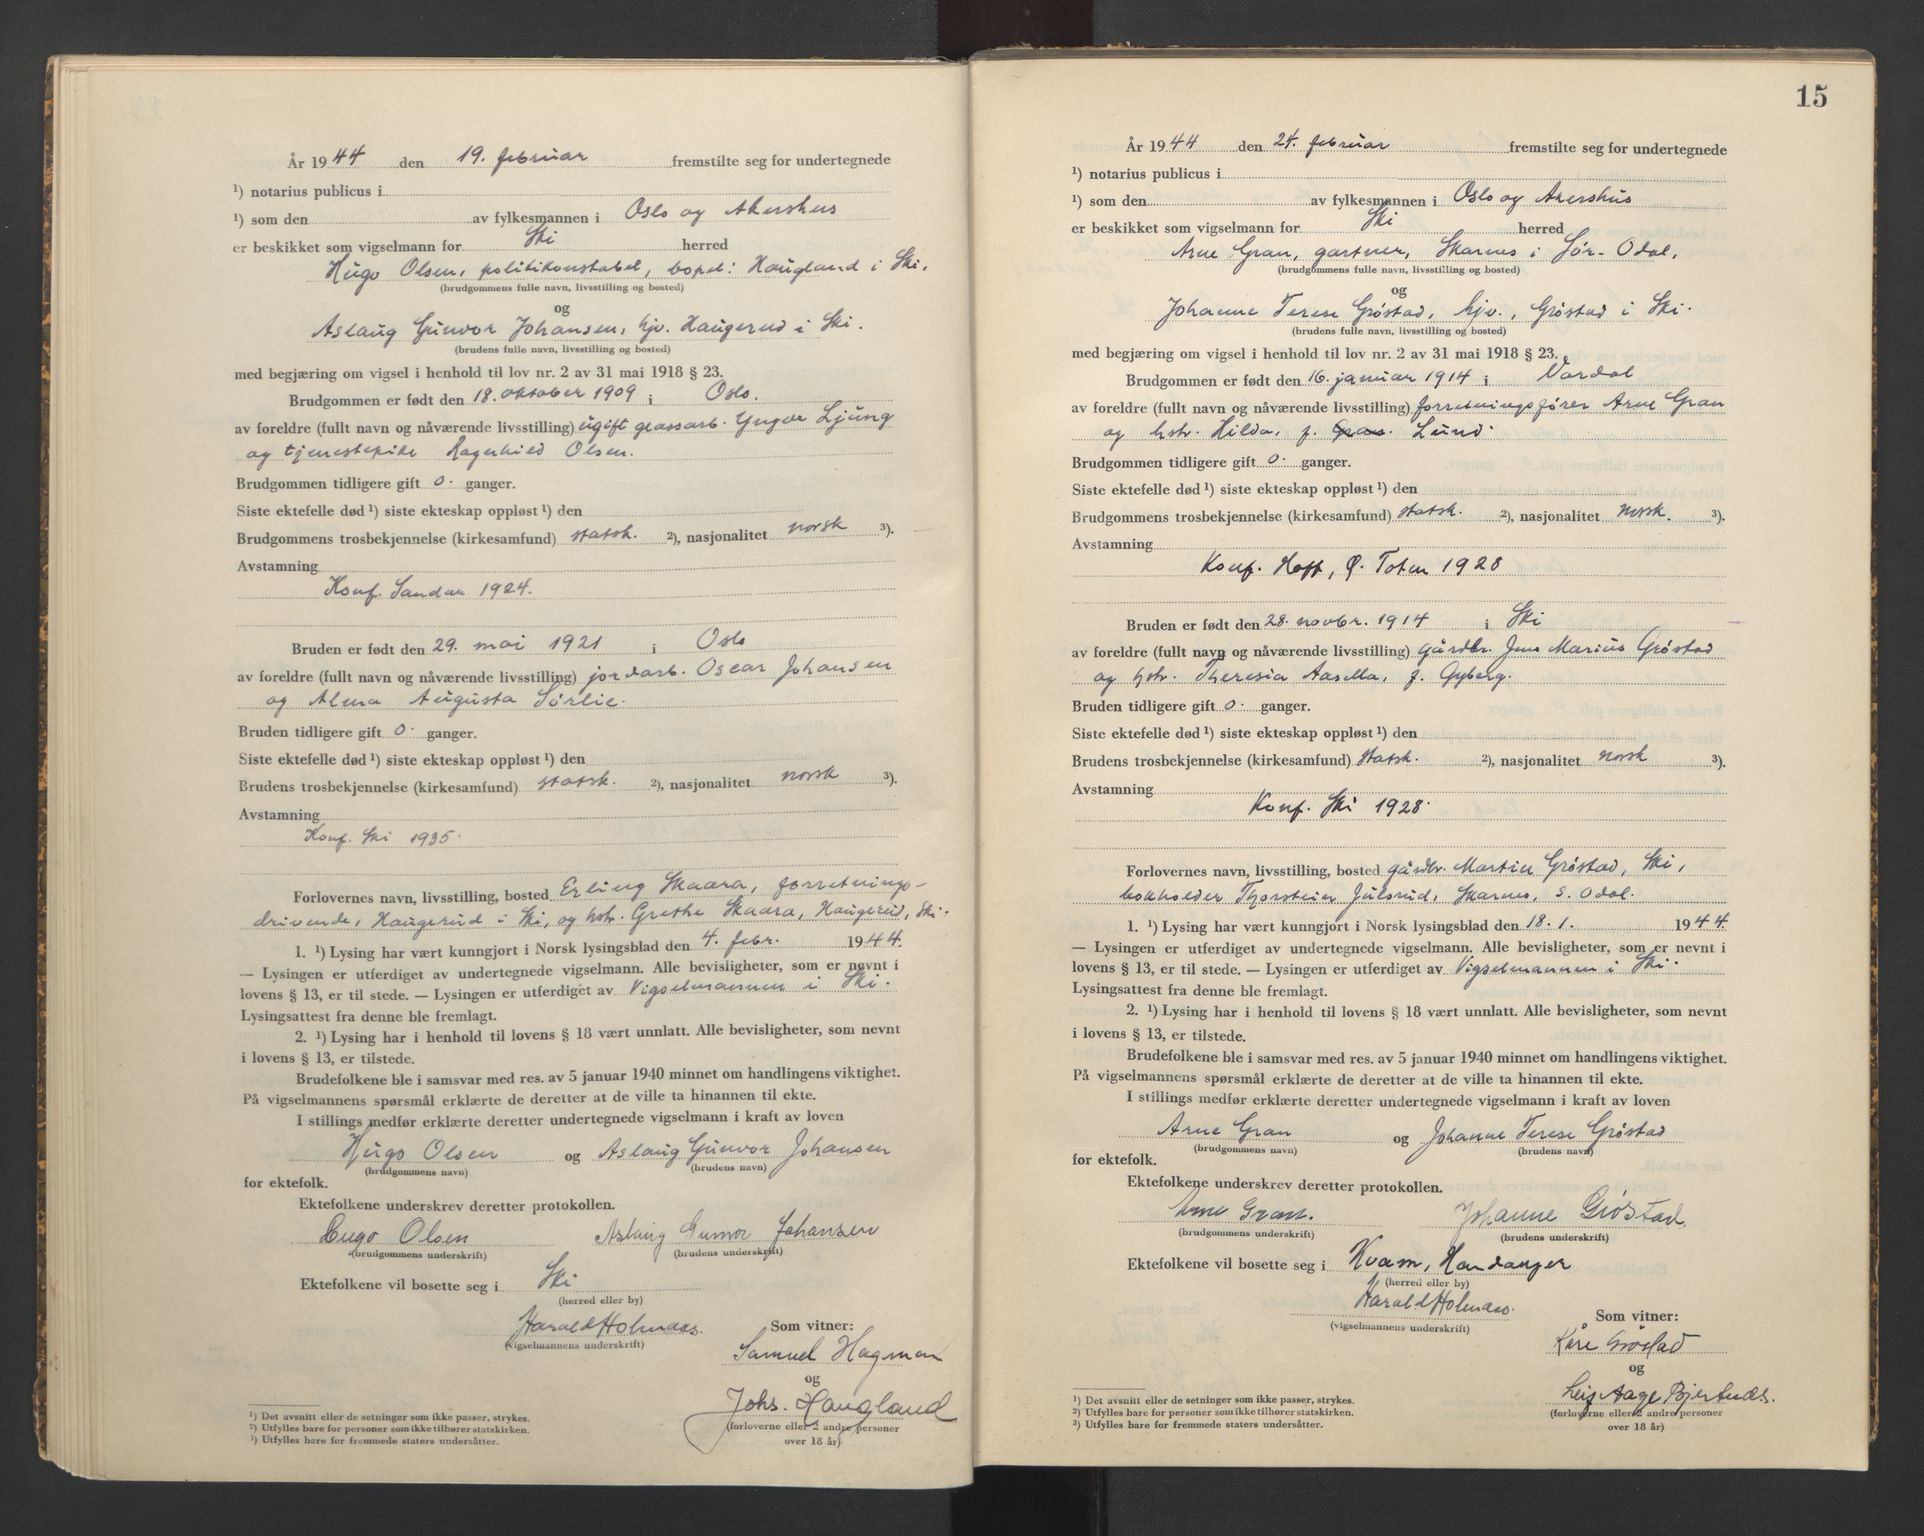 År 1944 den 19. februar fremstilte seg for undertegnede
¹) notarius publicus i
¹) som den av fylkesmannen i Oslo og Akershus
er beskikket som vigselmann for Ski herred
Hugo Olsen, politikonstabel, bopel: Haugland i Ski.
(brudgommens fulle navn, livsstilling og bosted)
og
Aslaug Gunvor Johansen, hjv. Haugerud i Ski.
(brudens fulle navn, livsstilling og bosted)
med begjæring om vigsel i henhold til lov nr. 2 av 31 mai 1918 § 23.
Brudgommen er født den 18. oktober 1909 i Oslo.
av foreldre (fullt navn og nåværende livsstilling) ugift glassarb. Yngve Ljung
og tjenestepike Ragnhild Olsen.
Brudgommen tidligere gift 0. ganger.
Siste ektefelle død¹) siste ekteskap oppløst¹) den
Brudgommens trosbekjennelse (kirkesamfund) statsk. ²), nasjonalitet norsk ³).
Avstamning
Konf. Sandar 1924.
Bruden er født den 29. mai 1921 i Oslo
av foreldre (fullt navn og nåværende livsstilling) jordarb. Oscar Johansen
og Alma Augusta Sørlie.
Bruden tidligere gift 0. ganger.
Siste ektefelle død¹) siste ekteskap oppløst¹) den
Brudens trosbekjennelse (kirkesamfund) statsk. ²), nasjonalitet norsk ³).
Avstamning
Konf. Ski 1935.
Forlovernes navn, livsstilling, bosted Erling Skaara, forretnings-
drivende, Haugerud i Ski, og hstr. Grethe Skaara, Haugerud, Ski.
1. ¹) Lysing har vært kunngjort i Norsk lysingsblad den 4. febr. 1944.
— Lysingen er utferdiget av undertegnede vigselmann. Alle bevisligheter, som er nevnt i
lovens § 13, er til stede. — Lysingen er utferdiget av Vigselmannen i Ski.
Lysingsattest fra denne ble fremlagt.
2. ¹) Lysing har i henhold til lovens § 18 vært unnlatt. Alle bevisligheter, som nevnt
i lovens § 13, er tilstede.
Brudefolkene ble i samsvar med res. av 5 januar 1940 minnet om handlingens viktighet.
På vigselmannens spørsmål erklærte de deretter at de ville ta hinannen til ekte.
I stillings medfør erklærte deretter undertegnede vigselmann i kraft av loven
Hugo Olsen og Aslaug Gunvor Johansen
(brudgommens navn) (brudens navn)
for ektefolk.
Ektefolkene underskrev deretter protokollen.
Hugo Olsen Aslaug Gunvor Johansen
(brudgommens underskrift) (brudens underskrift)
Ektefolkene vil bosette seg i Ski
(herred eller by)
Harald Holmaas. Som vitner:
(vigselmannens underskrift)
Samuel Hagman
og
Johs. Haugland
(forloverne eller 2 andre personer
over 18 år)
¹) Det avsnitt eller de setninger som ikke passer, strykes.
²) Utfylles bare for personer som ikke tilhører statskirken.
³) Utfylles bare for fremmede staters undersåtter.
15
År 1944 den 24. februar fremstilte seg for undertegnede
¹) notarius publicus i
¹) som den av fylkesmannen i Oslo og Akershus
er beskikket som vigselmann for Ski herred
Arne Gran, gartner, Skarnes i Sør-Odal.
(brudgommens fulle navn, livsstilling og bosted)
og
Johanne Terese Grøstad, hjv., Grøstad i Ski.
(brudens fulle navn, livsstilling og bosted)
med begjæring om vigsel i henhold til lov nr. 2 av 31 mai 1918 § 23.
Brudgommen er født den 16. januar 1914 i Vardal
av foreldre (fullt navn og nåværende livsstilling) forretningsfører Arne Gran
og hstr. Hilda, f. Gran. Lund.
Brudgommen tidligere gift 0. ganger.
Siste ektefelle død¹) siste ekteskap oppløst¹) den
Brudgommens trosbekjennelse (kirkesamfund) statsk. ²), nasjonalitet norsk. ³).
Avstamning
Konf. Hoff, Ø. Toten 1928
Bruden er født den 28. novbr. 1914 i Ski
av foreldre (fullt navn og nåværende livsstilling) gårdbr. Jens Marius Grøstad
og hstr. Theresia Aasella, f. Gyberg.
Bruden tidligere gift 0. ganger.
Siste ektefelle død¹) siste ekteskap oppløst¹) den
Brudens trosbekjennelse (kirkesamfund) statsk. ²), nasjonalitet norsk ³).
Avstamning
Konf. Ski 1928.
Forlovernes navn, livsstilling, bosted gårdbr. Martin Grøstad, Ski,
bokholder Thorstein Julsrud, Skarnes, S. Odal.
1. ¹) Lysing har vært kunngjort i Norsk lysingsblad den 18. 1. 1944.
— Lysingen er utferdiget av undertegnede vigselmann. Alle bevisligheter, som er nevnt i
lovens § 13, er til stede. — Lysingen er utferdiget av Vigselmannen i Ski.
Lysingsattest fra denne ble fremlagt.
2. ¹) Lysing har i henhold til lovens § 18 vært unnlatt. Alle bevisligheter, som nevnt
i lovens § 13, er tilstede.
Brudefolkene ble i samsvar med res. av 5 januar 1940 minnet om handlingens viktighet.
På vigselmannens spørsmål erklærte de deretter at de ville ta hinannen til ekte.
I stillings medfør erklærte deretter undertegnede vigselmann i kraft av loven
Arne Gran og Johanne Terese Grøstad
(brudgommens navn) (brudens navn)
for ektefolk.
Ektefolkene underskrev deretter protokollen.
Arne Gran. Johanne Grøstad.
(brudgommens underskrift) (brudens underskrift)
Ektefolkene vil bosette seg i Kvam, Hardanger
(herred eller by)
Harald Holmaas. Som vitner:
(vigselmannens underskrift)
Kåre Grøstad
og
Leif Aage Bjertnæs.
(forloverne eller 2 andre personer
over 18 år)
¹) Det avsnitt eller de setninger som ikke passer, strykes.
²) Utfylles bare for personer som ikke tilhører statskirken.
³) Utfylles bare for fremmede staters undersåtter.